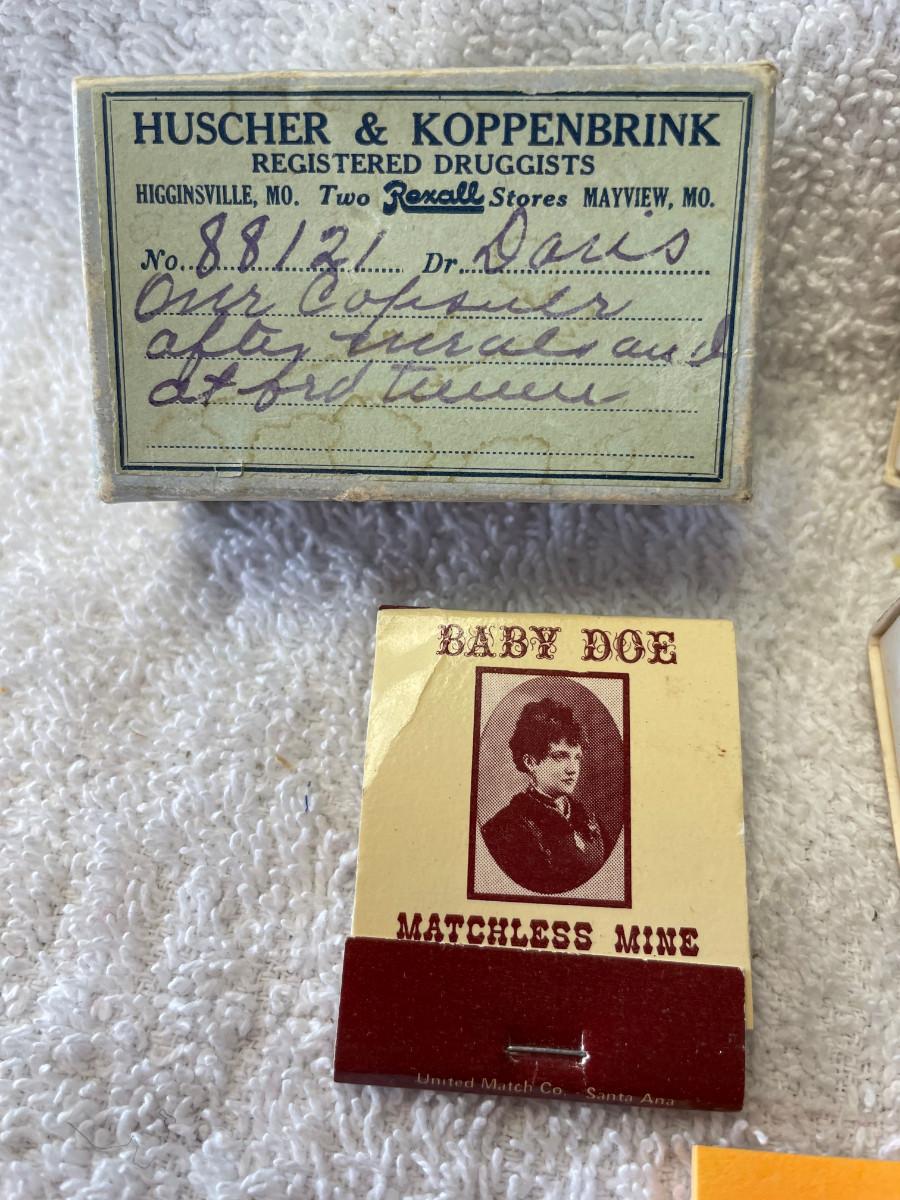 HUSCHER & KOPPENBRINK
REGISTERED DRUGGISTS
HIGGINSVILLE, MO. Two Rexall Stores MAYVIEW, MO.
No. 88121 Dr. Davis
One Capsule
after meals and
at bed time
BABY DOE
MATCHLESS MINE
United Match Co. Santa Ana